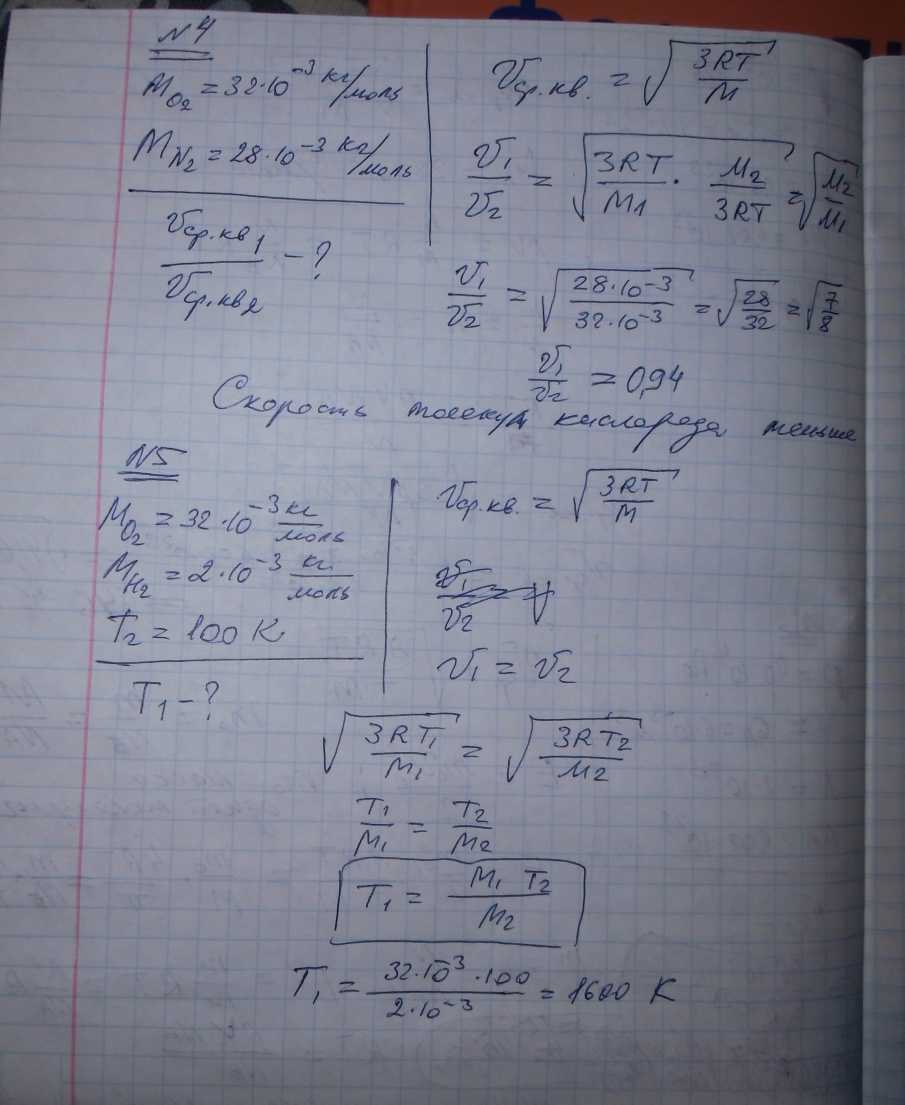 №4
M_{O_2} = 32·10^{-3} кг/моль
M_{N_2} = 28·10^{-3} кг/моль
\frac{v_{ср.кв 1}}{v_{ср.кв 2}} - ?
v_{ср.кв.} = \sqrt{\frac{3RT}{M}}
\frac{v_1}{v_2} = \sqrt{\frac{3RT}{M_1} · \frac{M_2}{3RT}} = \sqrt{\frac{M_2}{M_1}}
\frac{v_1}{v_2} = \sqrt{\frac{28·10^{-3}}{32·10^{-3}}} = \sqrt{\frac{28}{32}} = \sqrt{\frac{7}{8}}
\frac{v_1}{v_2} = 0,94
Скорость молекул кислорода меньше
№5
M_{O_2} = 32·10^{-3} \frac{кг}{моль}
M_{H_2} = 2·10^{-3} \frac{кг}{моль}
T_2 = 100 K
T_1 - ?
v_{ср.кв.} = \sqrt{\frac{3RT}{M}}
v_1 = v_2
\sqrt{\frac{3RT_1}{M_1}} = \sqrt{\frac{3RT_2}{M_2}}
\frac{T_1}{M_1} = \frac{T_2}{M_2}
T_1 = \frac{M_1 T_2}{M_2}
T_1 = \frac{32·10^{-3}·100}{2·10^{-3}} = 1600 K